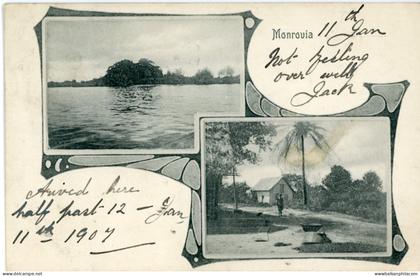 Monrovia
11th Jan
Not feeling
over well
Jack
Arrived here
half past 12 - Jan
11th 1907
www.balkanphila.com